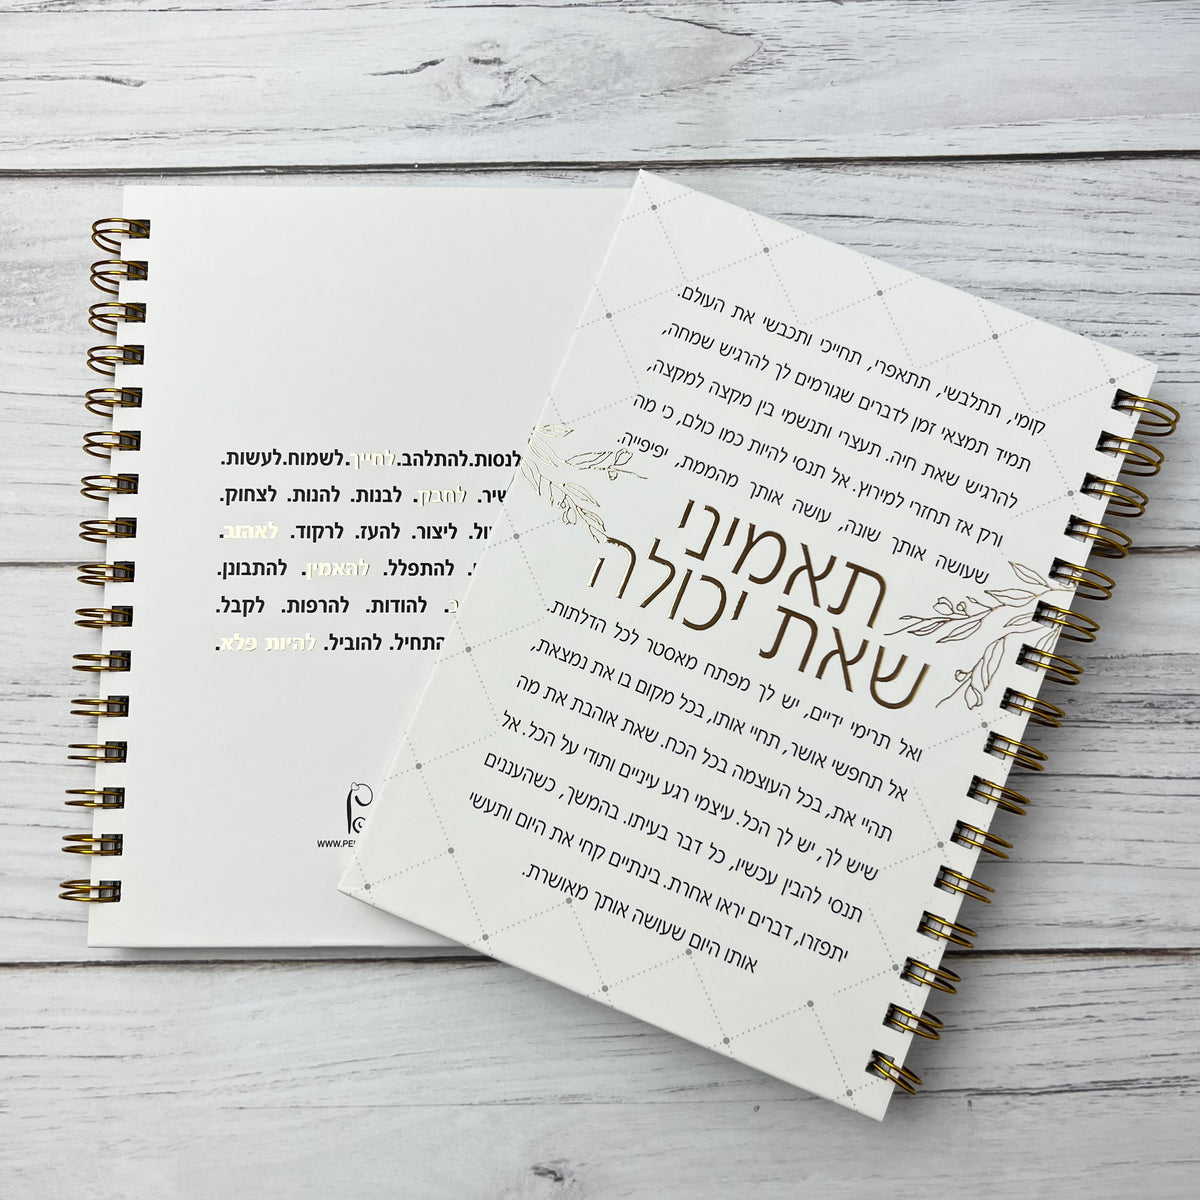 קומי, תתלבשי, תתאפרי, תחייכי ותכבשי את העולם.
תמיד תמצאי זמן לדברים שגורמים לך להרגיש שמחה,
להרגיש שאת חיה. תעצרי ותנשמי בין מקצה למקצה,
ורק אז תחזרי למירוץ. אל תנסי להיות כמו כולם, כי מה
שעושה אותך שונה, עושה אותך מהממת, יפיפייה.
תאמיני
שאת יכולה
ואל תרימי ידיים, יש לך מפתח מאסטר לכל הדלתות.
אל תחפשי אושר, תחיי אותו, בכל מקום בו את נמצאת,
תהיי את, בכל העוצמה בכל הכח. שאת אוהבת את מה
שיש לך, יש לך הכל. עיצמי רגע עיניים ותודי על הכל. אל
תנסי להבין עכשיו, כל דבר בעיתו. בהמשך, כשהעננים
יתפזרו, דברים יראו אחרת. בינתיים קחי את היום ותעשי
אותו היום שעושה אותך מאושרת.
לנסות.להתלהב.לחייך.לשמוח.לעשות.
לחבק. לבנות. להנות. לצחוק.
ליצור. להעז. לרקוד. לאהוב.
להתפלל. להאמין. להתבונן.
להודות. להרפות. לקבל.
להוביל. להיות פלא.